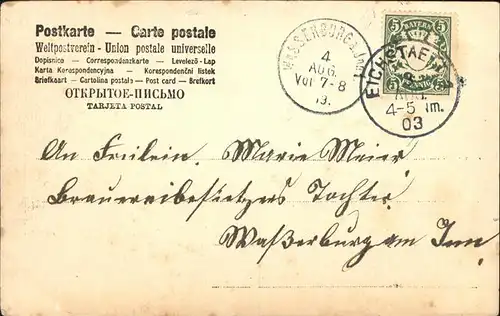 Postkarte — Carte postale
Weltpostverein - Union postale universelle
Dopisnice - Correspondenzkarte - Levelező-Lap
Karta Korespondencyjna - Korespondenční lístek
Briefkaart - Cartolina postale - Post card - Brefkort
ОТКРЫТОЕ-ПИСЬМО
TARJETA POSTAL
WASSERBURG A. Inn
4
AUG.
Vor 7-8
5 BAYERN 5
PFENNIG
EICHSTAETT
4-5 Nm.
03
An Fräulein. Marie Meier
Brauereibesitzers Tochter
Waßerburg am Inn